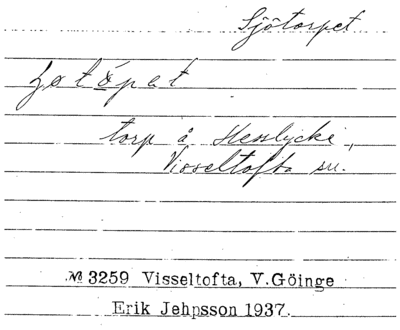 Sjötorpet
torp å Hesslycke,
Visseltofta sn.
№ 3259 Visseltofta, V.Göinge
Erik Jehpsson 1937.